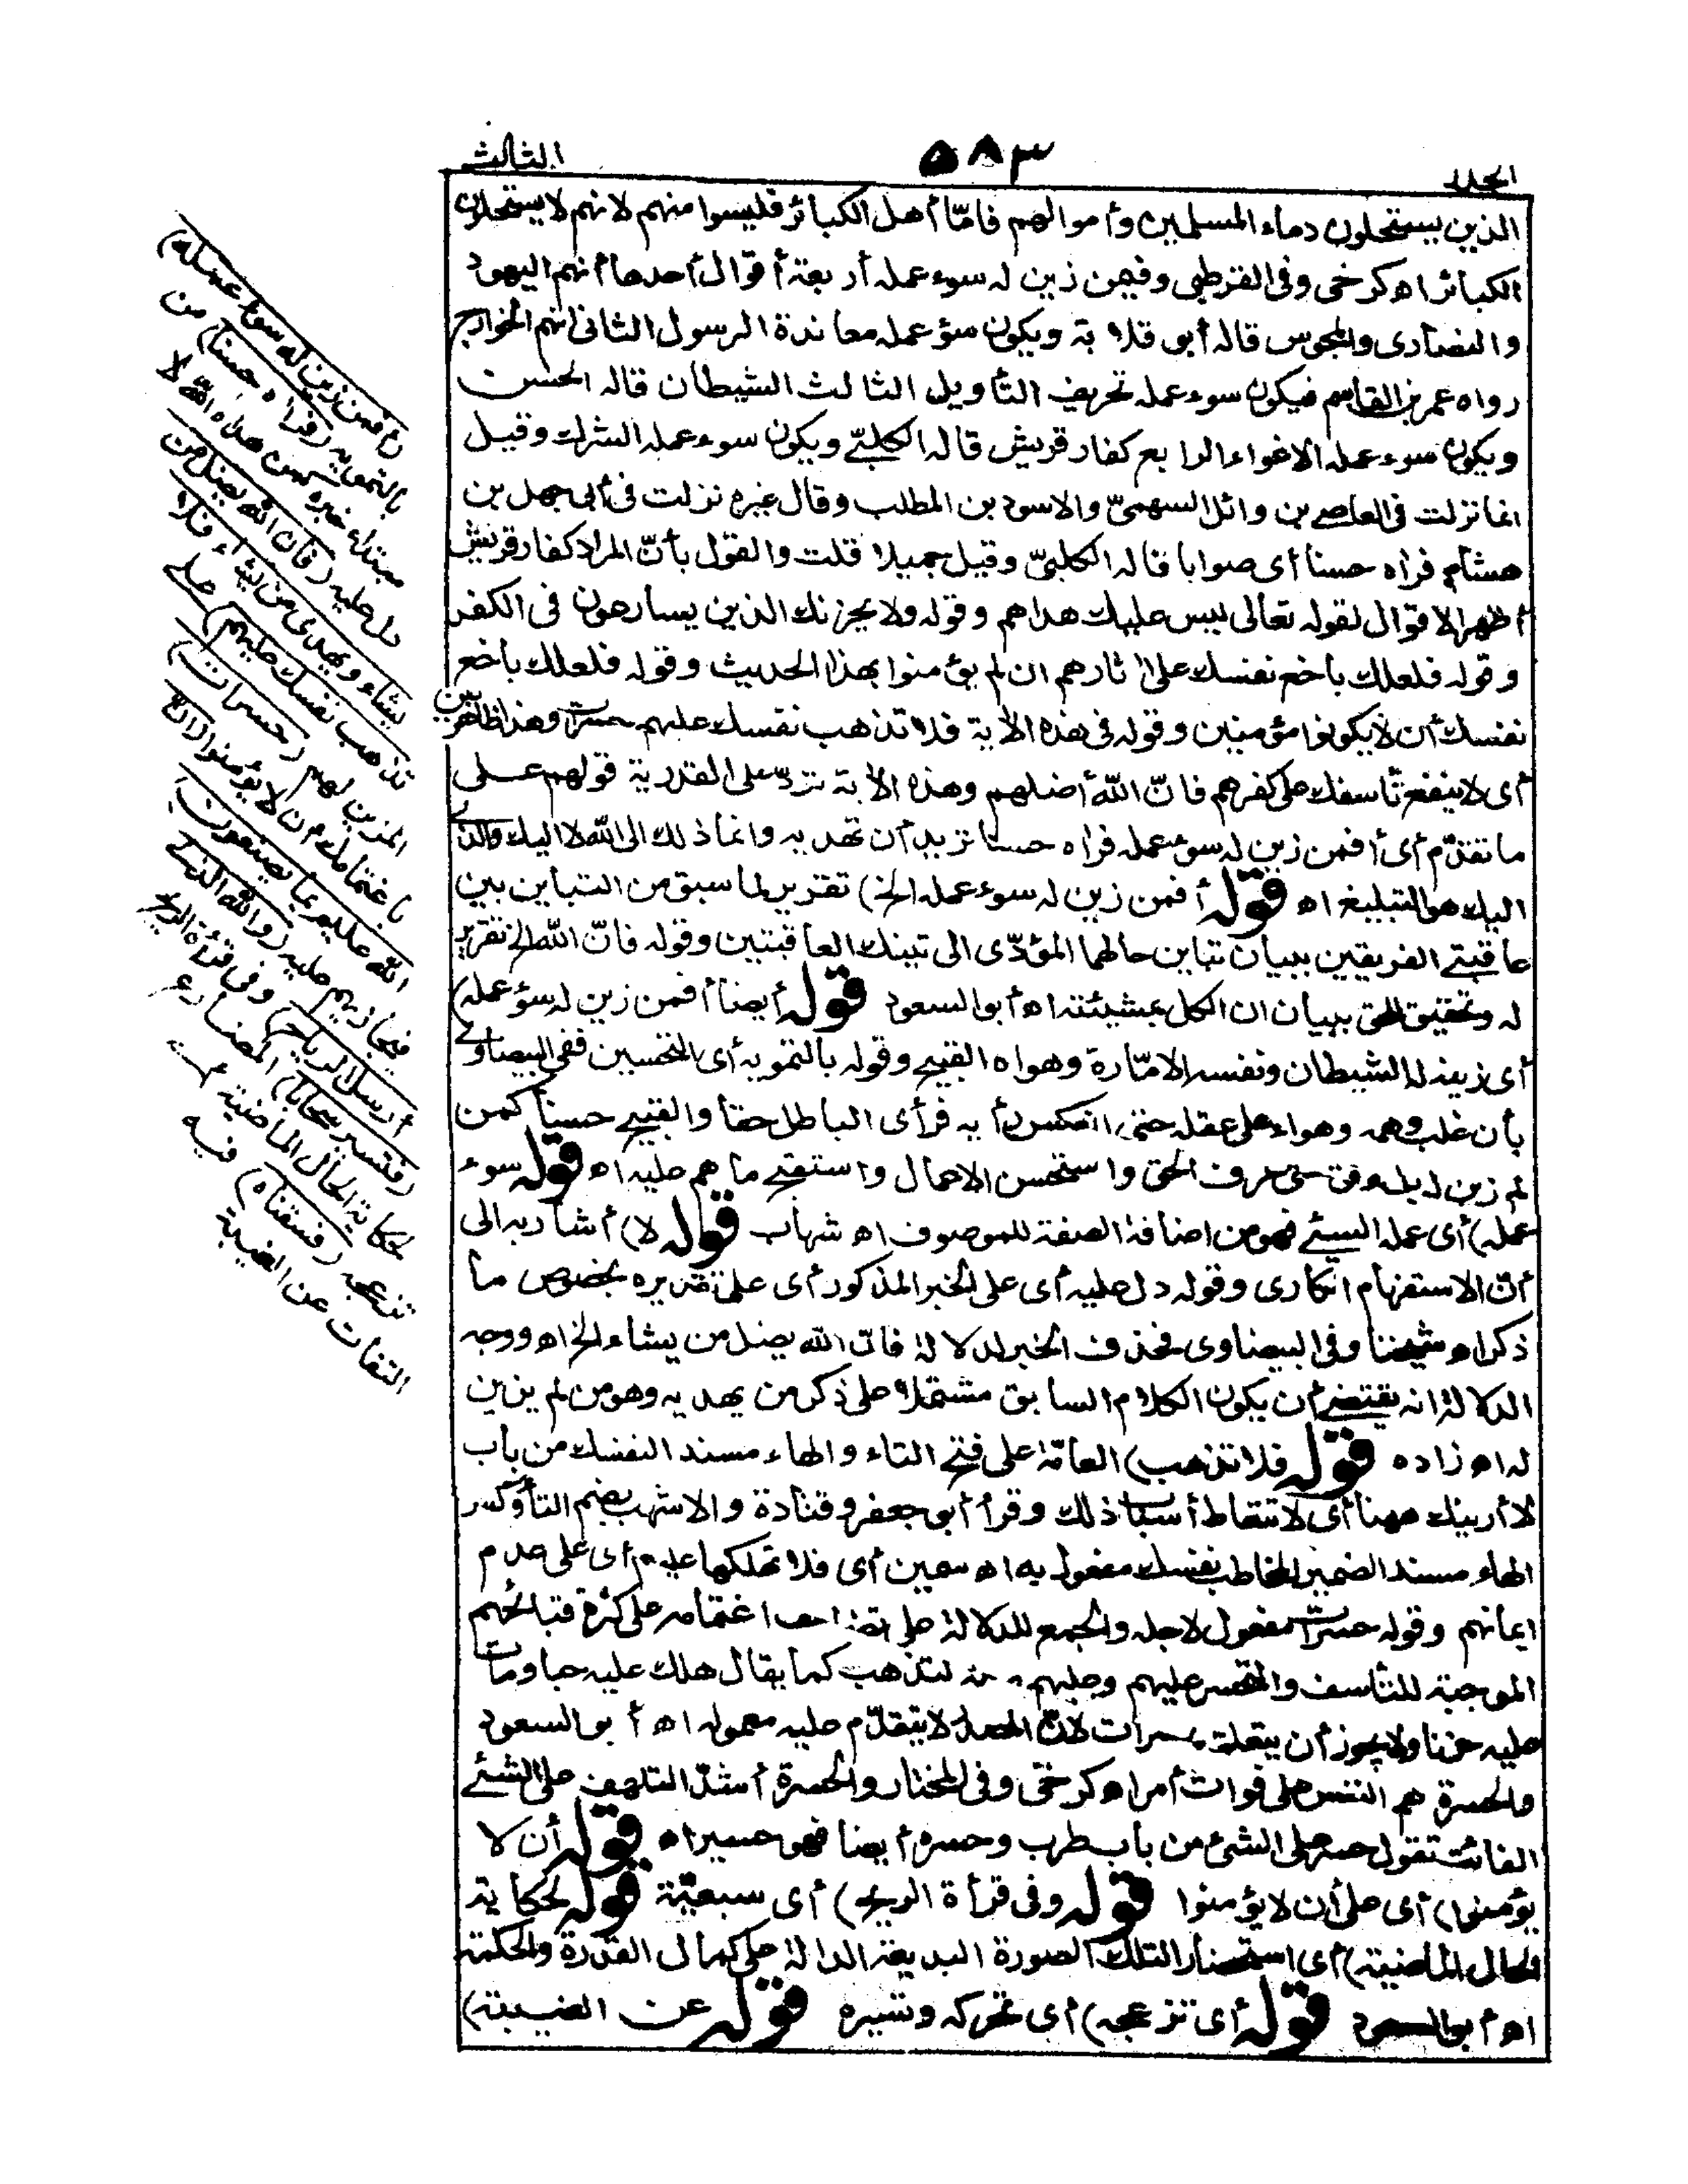 الجلد
٥٨٣
الثالث
الذين يستحلون دماء المسلمين وأموالهم فامّا أهل الكبائر فليسوا منهم لانهم لا يستحلون
الكبائر اه كرخى وفى القرطبى وفيمن زين له سوء عمله أربعة أقوال أحدها أنهم اليهود
والنصارى والمجوس قاله أبو قلابة ويكون سؤ عمله معاندة الرسول الثانى انهم الخوارج
رواه عمر بن القاسم فيكون سوء عمله تحريف التأويل الثالث الشيطان قاله الحسن
ويكون سوء عمله الاغواء الرابع كفار قريش قاله الكلبىّ ويكون سوء عمله الشرك وقيل
انما نزلت فى العاصى بن وائل السهمىّ والاسود بن المطلب وقال غيره نزلت فى أبى جهل بن
هشام فراه حسنا أى صوابا قاله الكلبىّ وقيل جميلا قلت والقول بأنّ المراد كفار قريش
أظهر الاقوال لقوله تعالى ليس عليك هداهم وقوله ولا يحزنك الذين يسارعون فى الكفر
وقوله فلعلك باخع نفسك على اثارهم ان لم يؤمنوا بهذا الحديث وقوله فلعلك باخع
نفسك أن لا يكونوا مؤمنين وقوله فى هذه الأية فلا تذهب نفسك عليهم حسرات وهذا ظاهر بين
أى لا ينفع تأسفك على كفرهم فانّ اللّٰه أضلهم وهذه الأية تردّ على القدرية قولهم عـلى
ما تقدّم أى أفمن زين له سوء عمله فراه حسنا تريد أن تهديه وانما ذلك الى اللّٰه لا اليك والذى
اليك هو التبليغ اه قوله أفمن زين له سوء عمله الخ) تقرير لما سبق من التباين بين
عاقبتى الفريقين ببيان تباين حالهما المؤدّى الى تينك العاقبتين وقوله فانّ اللّٰه الخ تقرير
له وتحقيق للحق ببيان ان الكل بمشيئته اه أبو السعود قوله أيضا أفمن زين له سؤ عمله)
أى زينه له الشيطان ونفسه الامّارة وهواه القبيح وقوله بالتمويه أى التحسين ففى البيضاوى
بأن غلب وهمه وهواه على عقله حتى انتكس رأيه فرأى الباطل حقا والقبيح حسنا كمن
لم زين له بل وفق حتى عرف الحق واستحسن الاعمال واستقبح ما هم عليه اه قوله سوء
عمله) أى عمله السيئ فهو من اضافة الصفة للموصوف اه شهاب قوله لا) أشار به الى
أنّ الاستفهام انكارى وقوله دل عليه أى على الخبر المذكور أى على تقديره بخصوص ما
ذكر اه شيخنا وفى البيضاوى فحذف الخبر لدلالة فانّ اللّٰه يضل من يشاء الخ اه ووجه
الدلالة انه يقتضى أن يكون الكلام السابق مشتملا على ذكر من يهديه وهو من لم يزين
له اه زاده قوله فلا تذهب) العامّة على فتح التاء والهاء مسند النفسك من باب
لا أرينك ههنا أى لا تتعاط أسباب ذلك وقرأ أبو جعفر وقتادة والاشهب بضم التأ وكسر
الهاء مسند الضمير المخاطب نفسك مفعول به اه سمين أى فلا تهلكها عليهم أى على عدم
ايمانهم وقوله حسرات مفعول لاجله والجمع للدلالة على تضاعف اغتمامه على كثرة قبائحهم
الموجبة للتأسف والتحسر عليهم وعليهم صلة لتذهب كما يقال هلك عليه حبا ومات
عليه حزنا ولا يجوز أن يتعلق بحسرات لانّ المصدر لا يتقدّم عليه معموله اه أبو السعود
والحسرة هم النفس على فوات أمر اه كرخى وفى المختار والحسرة أشدّ التلهف على الشئ
الفائت تقول حسر على الشئ من باب طرب وحسرة أيضا فهو حسير اه قوله أن لا
يؤمنوا) أى على أن لا يؤمنوا قوله وفى قرأة الريح) أى سبعيّة قوله لحكاية
الحال الماضية) أى استحضار التلك الصورة البديعة الدالة على كمال القدرة والحكمة
اه أبو السعود قوله أى تزعجه) أى تحركه وتثيره قوله عن الغيبة)
(أفمن زين له سوء عمله)
بالتمويه (فراه حسنا) من
مبتداء خبره كمن هداه اللّٰه لا
دل عليه (فان اللّٰه يضل من
يشاء ويهدى من يشاء فلا
تذهب نفسك عليهم) على
المزين لهم (حسرات)
باغتمامك أن لا يؤمنوا (ان
اللّٰه عليم بما يصنعون)
فيجازيهم عليه (واللّٰه الذى
أرسل الرياح) وفى قرأة الريح
(فتثير سحابا) المضارع
لحكاية الحال الماضية أى
تزعجه (فسقناه) فيه
التفات عن الغيبة